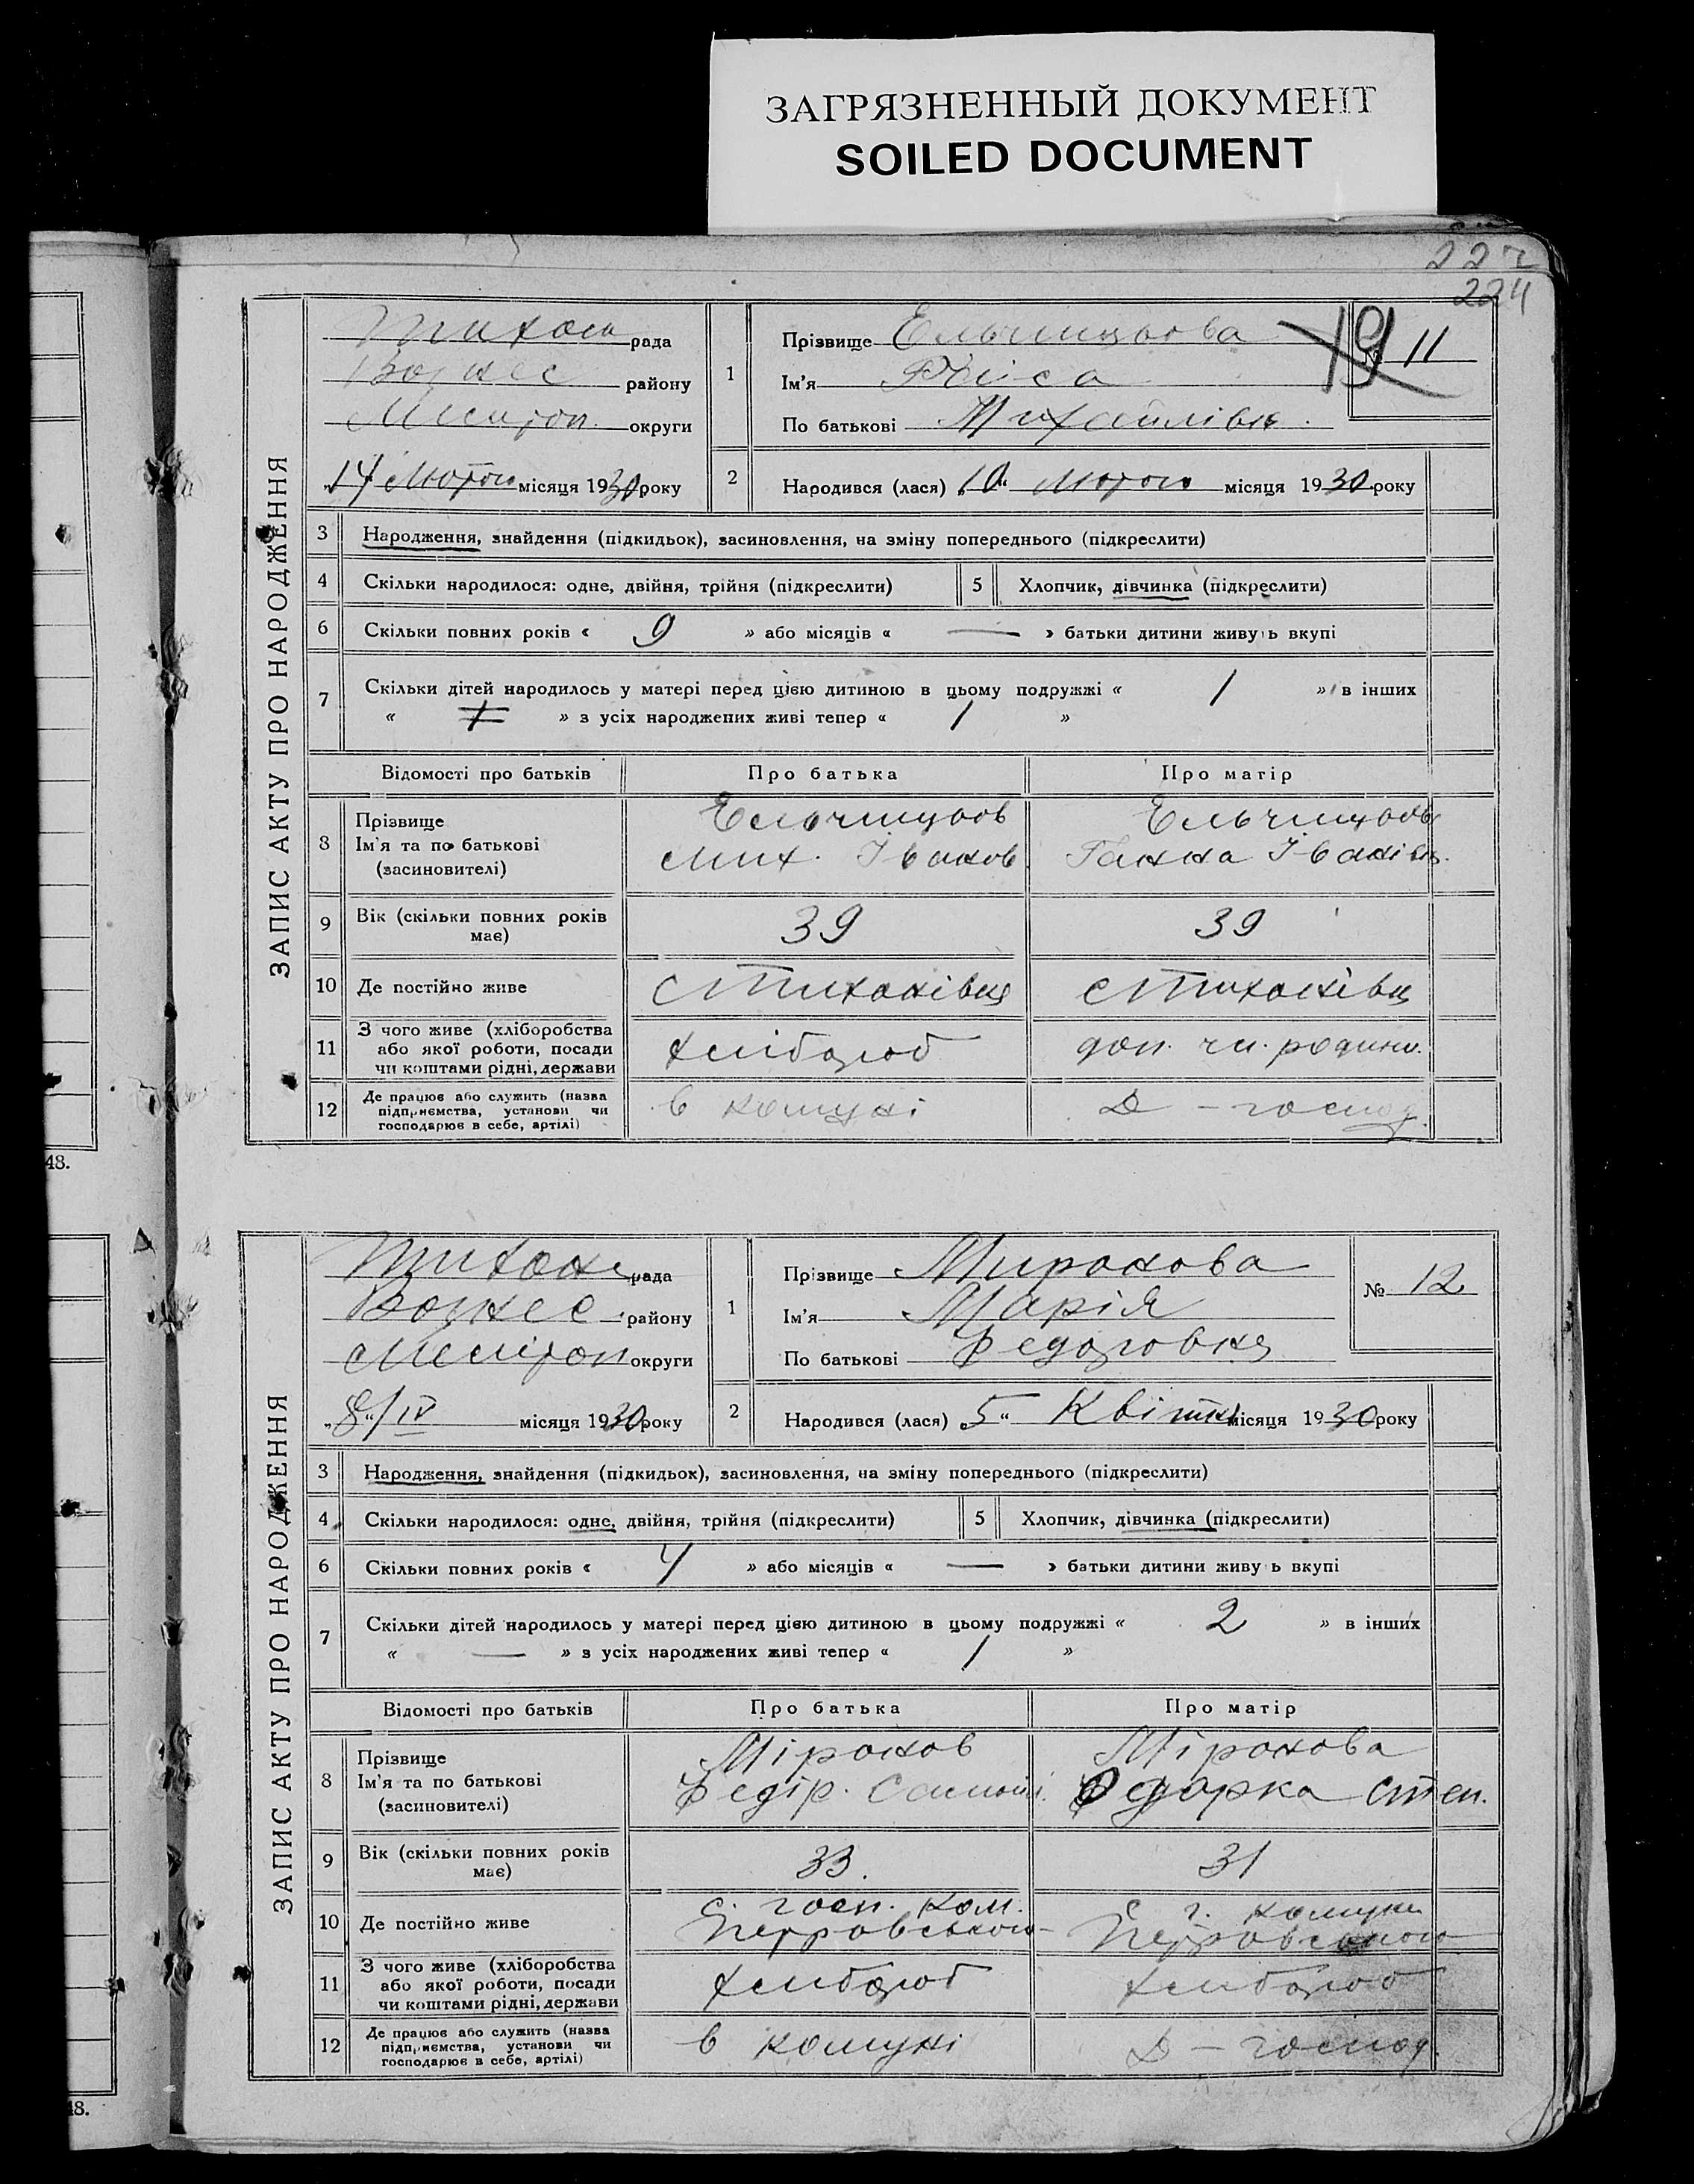 ЗАГРЯЗНЕННЫЙ ДОКУМЕНТ
SOILED DOCUMENT
227
224
ЗАПИС АКТУ ПРО НАРОДЖЕННЯ
Тихон рада
Вознес району
Меліто́п. округи
14 Лютого місяця 1930 року
1 Прізвище Ельчищова
Ім'я Раіса
По батькові Михайлівн.
№ 11
19
2 Народився (лася) „10“ Лютого місяця 1930 року
3 Народження, знайдення (підкидьок), засиновлення, на зміну попереднього (підкреслити)
4 Скільки народилося: одне, двійня, трійня (підкреслити) 5 Хлопчик, дівчинка (підкреслити)
6 Скільки повних років « 9 » або місяців « — » батьки дитини живуть вкупі
7 Скільки дітей народилось у матері перед цією дитиною в цьому подружжі « 1 » в інших
« » з усіх народжених живі тепер « 1 »
Відомості про батьків Про батька Про матір
8 Прізвище
Ім'я та по батькові
(засиновителі)
Мих. Іванов. Ганна Іванівн.
9 Вік (скільки повних років має) 39 39
10 Де постійно живе с Тихонівці с Тихонівці
11 З чого живе (хліборобства або якої роботи, посади чи коштами рідні, держави хлібороб доп. чл. родини.
12 Де працює або служить (назва підприємства, установи чи господарює в себе, артілі) в комуні Д – господ.
48.
ЗАПИС АКТУ ПРО НАРОДЖЕННЯ
Тихон. рада
Вознес. району
Меліт́оп округи
„8“/IV місяця 1930 року
1 Прізвище Миронова
Ім'я Марія
По батькові Федоровна
№ 12
2 Народився (лася) „5“ Квітня місяця 1930 року
3 Народження, знайдення (підкидьок), засиновлення, на зміну попереднього (підкреслити)
4 Скільки народилося: одне, двійня, трійня (підкреслити) 5 Хлопчик, дівчинка (підкреслити)
6 Скільки повних років « 4 » або місяців « — » батьки дитини живуть вкупі
7 Скільки дітей народилось у матері перед цією дитиною в цьому подружжі « 2 » в інших
« — » з усіх народжених живі тепер « 1 »
Відомості про батьків Про батька Про матір
8 Прізвище
Ім'я та по батькові
(засиновителі)
Міронов Міронова
Федір. Самой. Одарка Степ.
9 Вік (скільки повних років має) 33. 31
10 Де постійно живе
С. госп. ком. С. г. комуни
Петровського Петровського
11 З чого живе (хліборобства або якої роботи, посади чи коштами рідні, держави хлібороб хлібороб
12 Де працює або служить (назва підприємства, установи чи господарює в себе, артілі) в комуні Д – господ.
48.